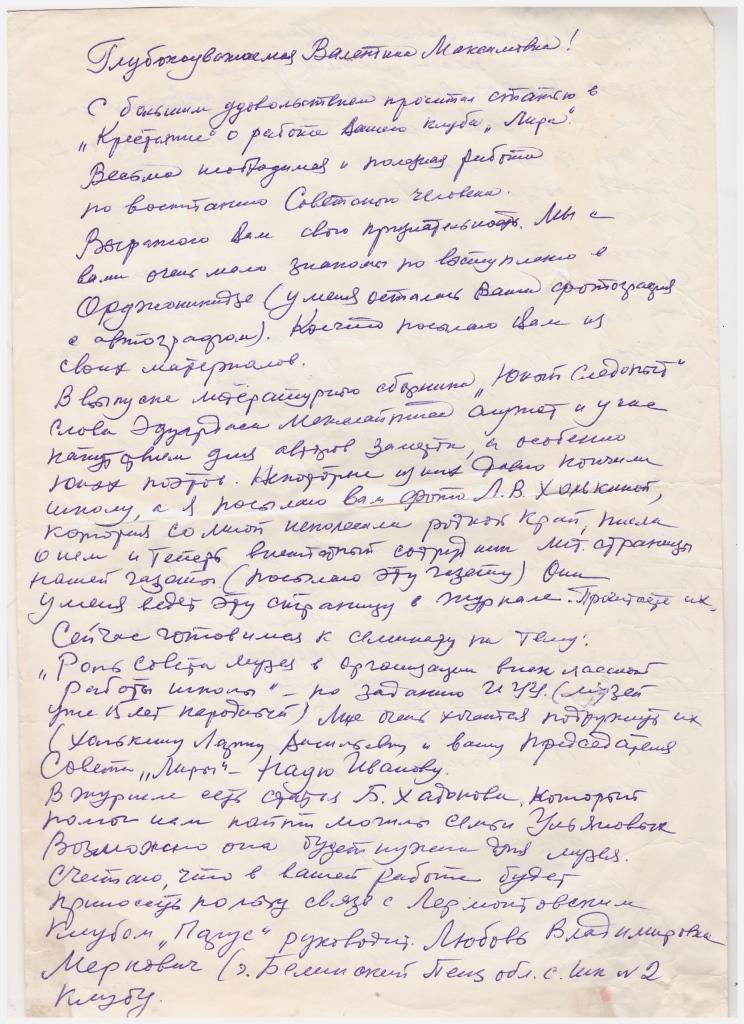 Глубокоуважаемая Валентина Максимовна!
С большим удовольствием прочитал статью в
„Крестьянке" о работе Вашего клуба „Лира".
Весьма необходимая и полезная работа
по воспитанию Советского человека.
Выражаю Вам свою признательность. Мы с
вами очень мало знакомы по выступлению в
Орджоникидзе (у меня осталась Ваша фотография
с автографом). Кое что посылаю Вам из
своих материалов.
В выпуске литературного сборника „Юный Следопыт"
слова Эдуардаса Межелайтиса служат и у нас
напутствием для авторов заметок, и особенно
юных поэтов. Некоторые из них давно кончили
школу, а я посылаю вам фото Л.В. Холькиной,
которая со мной исколесила родной край, писала
о нем и теперь внештатный сотрудник лит. страницы
нашей газеты (посылаю эту газету) Она
у меня ведет эту страницу в журнале. Прочтайте их.
Сейчас готовимся к семинару на тему:
„Роль совета музея в организации внеклассной
работы школы" – по заданию ИУУ. (музей
уже 15 лет народный) Мне очень хочется подружить их
(Холькину Ларису Васильевну и вашу председателя
Совета „Лиры" – Надю Иванову.
В журнале есть статья Б. Хадонова, который
помог нам найти могилы семьи Ульяновых
Возможно она будет нужна для музея.
Считаю, что в вашей работе будет
приносить пользу связь с Лермонтовским
Клубом „Парус" руководит Любовь Владимировна
Меркович (г. Белинский Пенз обл. с. шк № 2
Клубу.